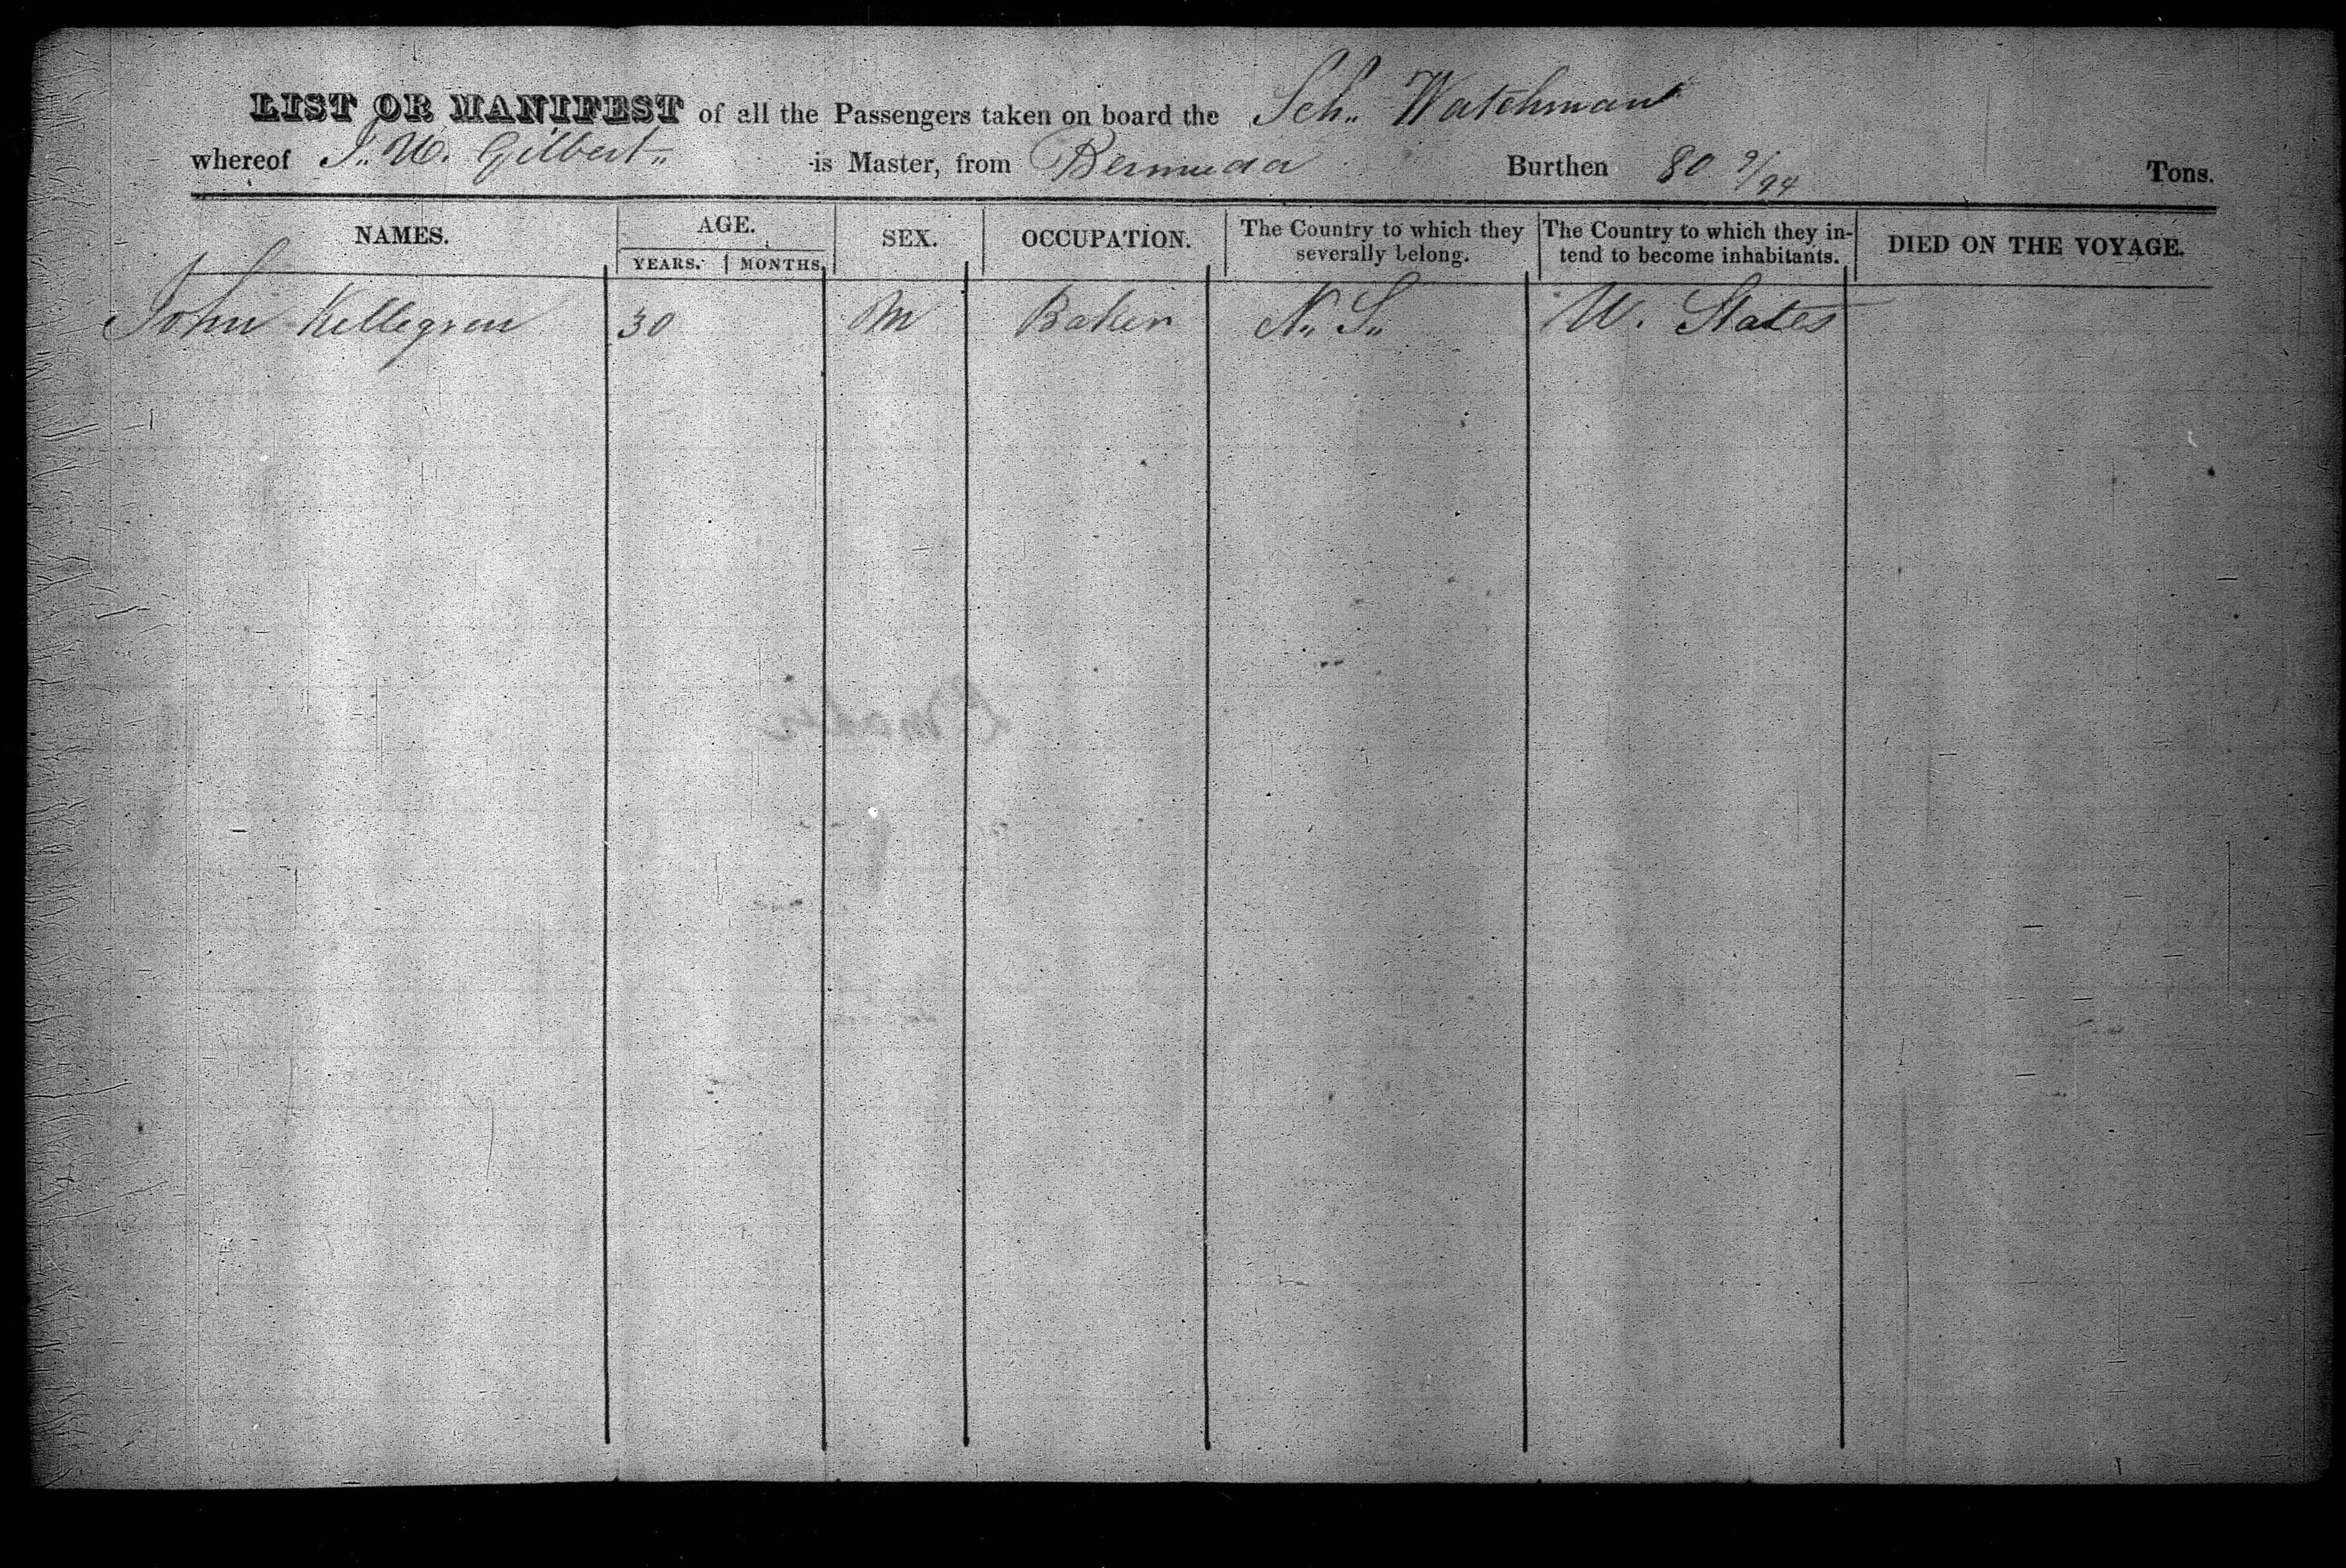 LIST OR MANIFEST of all the Passengers taken on board the Sch.. Watchman
whereof J.. W. Gilbert.. is Master, from Bermuda Burthen 80 9/94 Tons.
NAMES. AGE. YEARS. MONTHS. SEX. OCCUPATION. The Country to which they severally belong. The Country to which they intend to become inhabitants. DIED ON THE VOYAGE.
John Kellegren 30 M Baker N.. S.. U. States